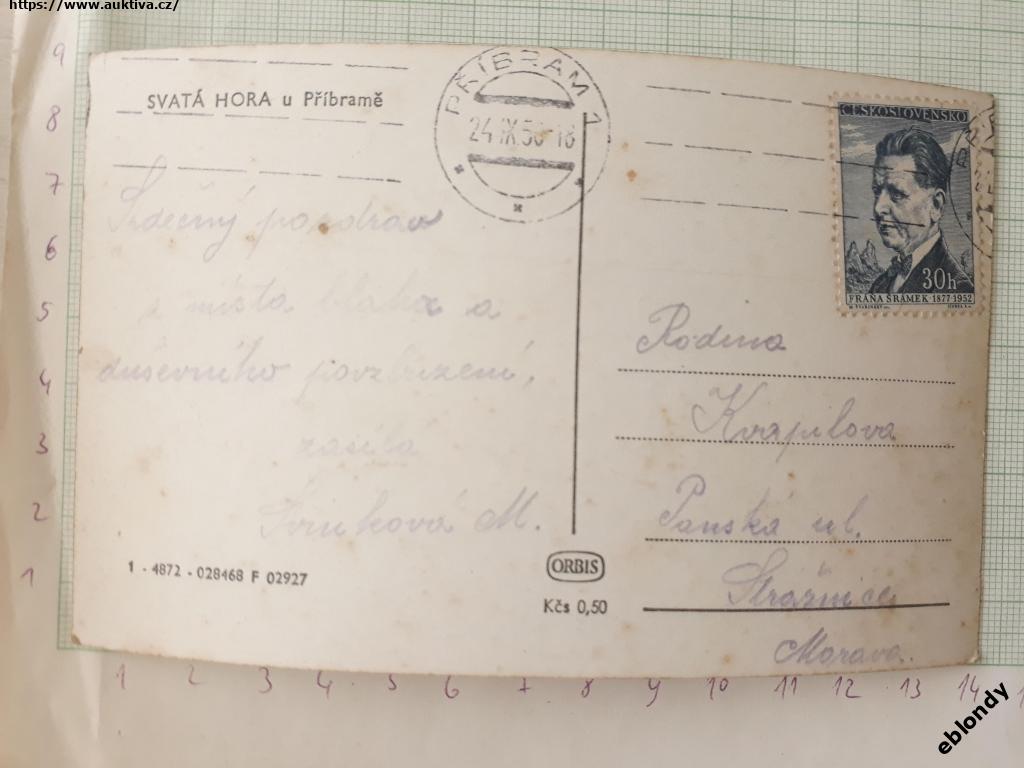 https://www.auktiva.cz/
9
8
7
6
5
4
3
2
1
SVATÁ HORA u Příbramě
PŘÍBRAM 1
24.IX.56-18
ČESKOSLOVENSKO
30h
FRÁŇA ŠRÁMEK 1877-1952
Srdečný pozdrav
z místa blaha a
duševního povzbuzení,
zasílá
M.
Rodina
Kvapilova
Panská ul.
Strážnice
Morava.
1 - 4872 - 028468 F 02927
ORBIS
Kčs 0,50
1 2 3 4 5 6 7 8 9 10 11 12 13 14
eblondy